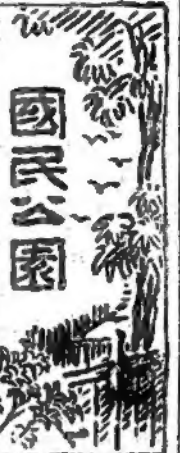 國民公園